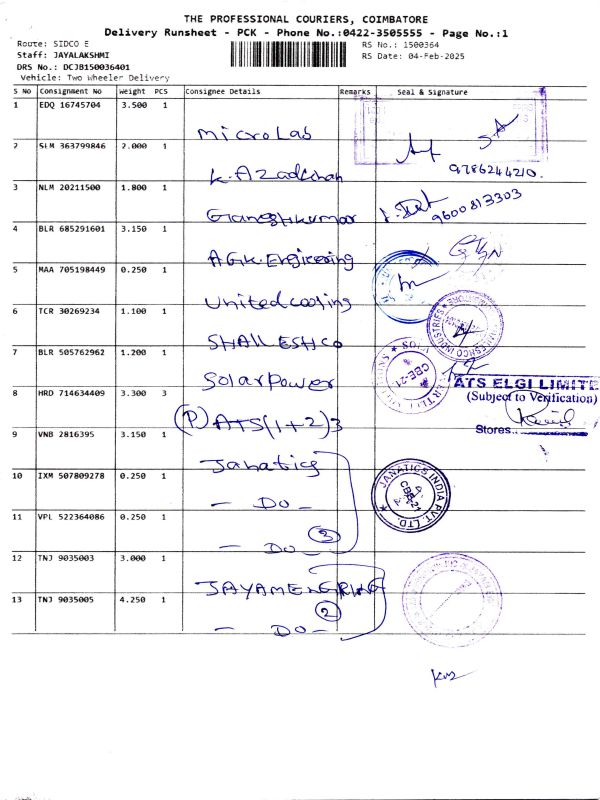 THE PROFESSIONAL COURIERS, COIMBATORE
Delivery Runsheet - PCK - Phone No.:0422-3505555 - Page No.:1
Route: SIDCO E
RS No.: 1500364
Staff: JAYALAKSHMI
RS Date: 04-Feb-2025
DRS No.: DCJB150036401
Vehicle: Two Wheeler Delivery
S No Consignment No Weight PCS Consignee Details Remarks Seal & Signature
1 EDQ 16745704 3.500 1
MicroLab
2 SLM 363799846 2.000 1
9786244210.
K. AZadkhan
3 NLM 20211500 1.800 1
9600813303
Ganeshkumar
4 BLR 685291601 3.150 1
AGK. Engineering
5 MAA 705198449 0.250 1
United cooling
6 TCR 30269234 1.100 1
SHAILESHCO
7 BLR 505762962 1.200 1
CBE-21
Solar Power
ATS ELGI LIMITE
8 HRD 714634409 3.300 3
(Subject to Verification)
(P) ATS (1+2) 3
Stores..
9 VNB 2816395 3.150 1
Janatics
10 IXM 507809278 0.250 1
JANATICS INDIA PVT. LTD.
CBE-21
- DO -
11 VPL 522364086 0.250 1
- DO - 3
12 TNJ 9035003 3.000 1
JAYAMENGRING
13 TNJ 9035005 4.250 1
2
- DO -